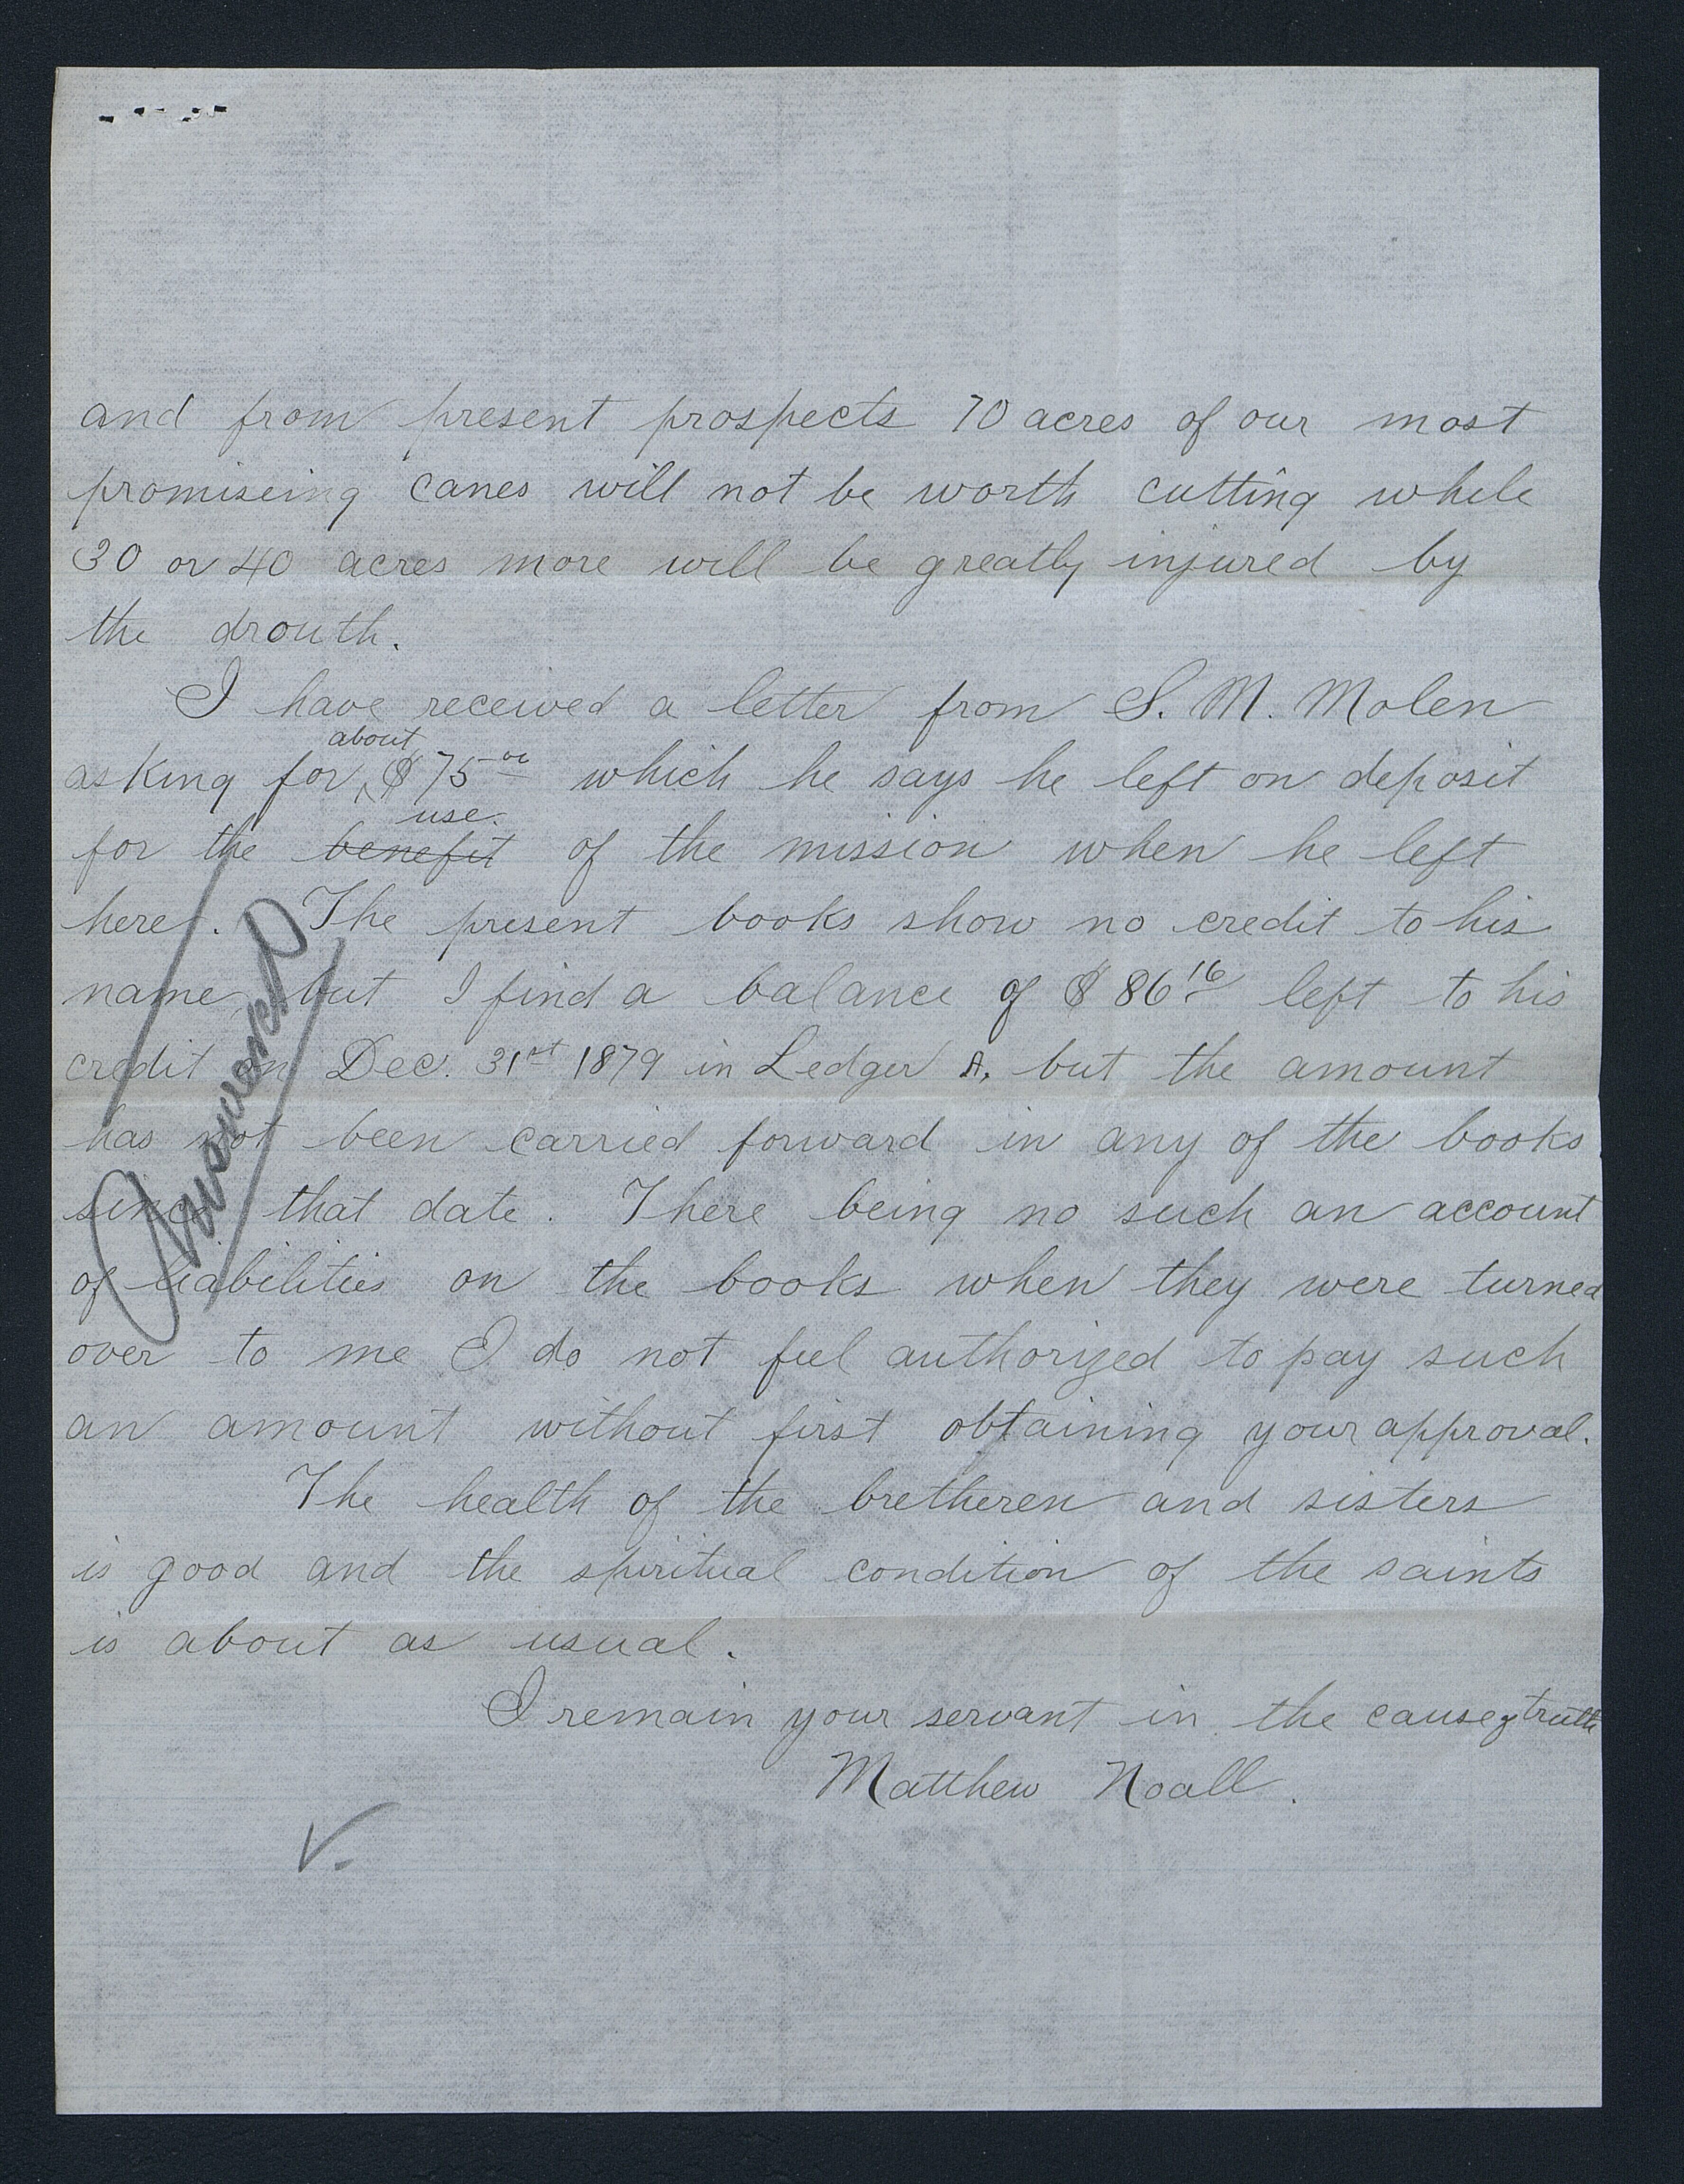 and from present prospects 70 acres of our most
promiseing canes will not be worth cutting while
30 or 40 acres more will be greatly injured by
the drouth.
I have received a letter from S. M. Molen
about
asking for ‸ $75 00 which he says he left on deposit
use.
for the benefit of the mission when he left
here. The present books show no credit to his
name, but I find a balance of $86 16 left to his
credit on Dec. 31st 1879 in Ledger A, but the amount
has not been carried forward in any of the books
since that date. There being no such an account
of liabilities on the books when they were turned
over to me I do not feel authorized to pay such
an amount without first obtaining your approval.
The health of the bretheren and sisters
is good and the spiritual condition of the saints
is about as usual.
I remain your servant in the cause of truth
Matthew Noall.
Answered